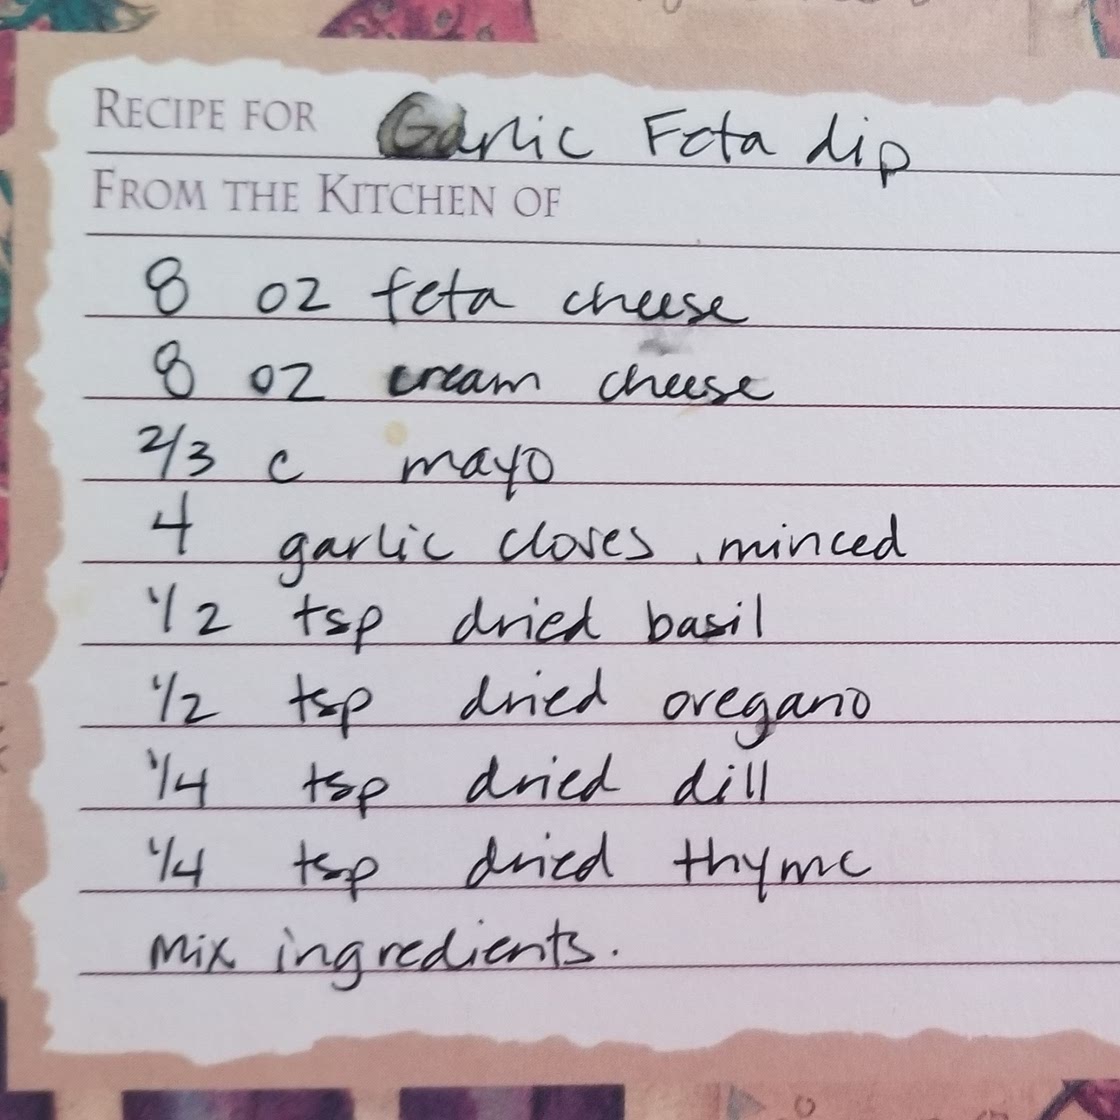 RECIPE FOR Garlic Feta dip
FROM THE KITCHEN OF
8 oz feta cheese
8 oz cream cheese
2/3 c mayo
4 garlic cloves, minced
1/2 tsp dried basil
1/2 tsp dried oregano
1/4 tsp dried dill
1/4 tsp dried thyme
Mix ingredients.